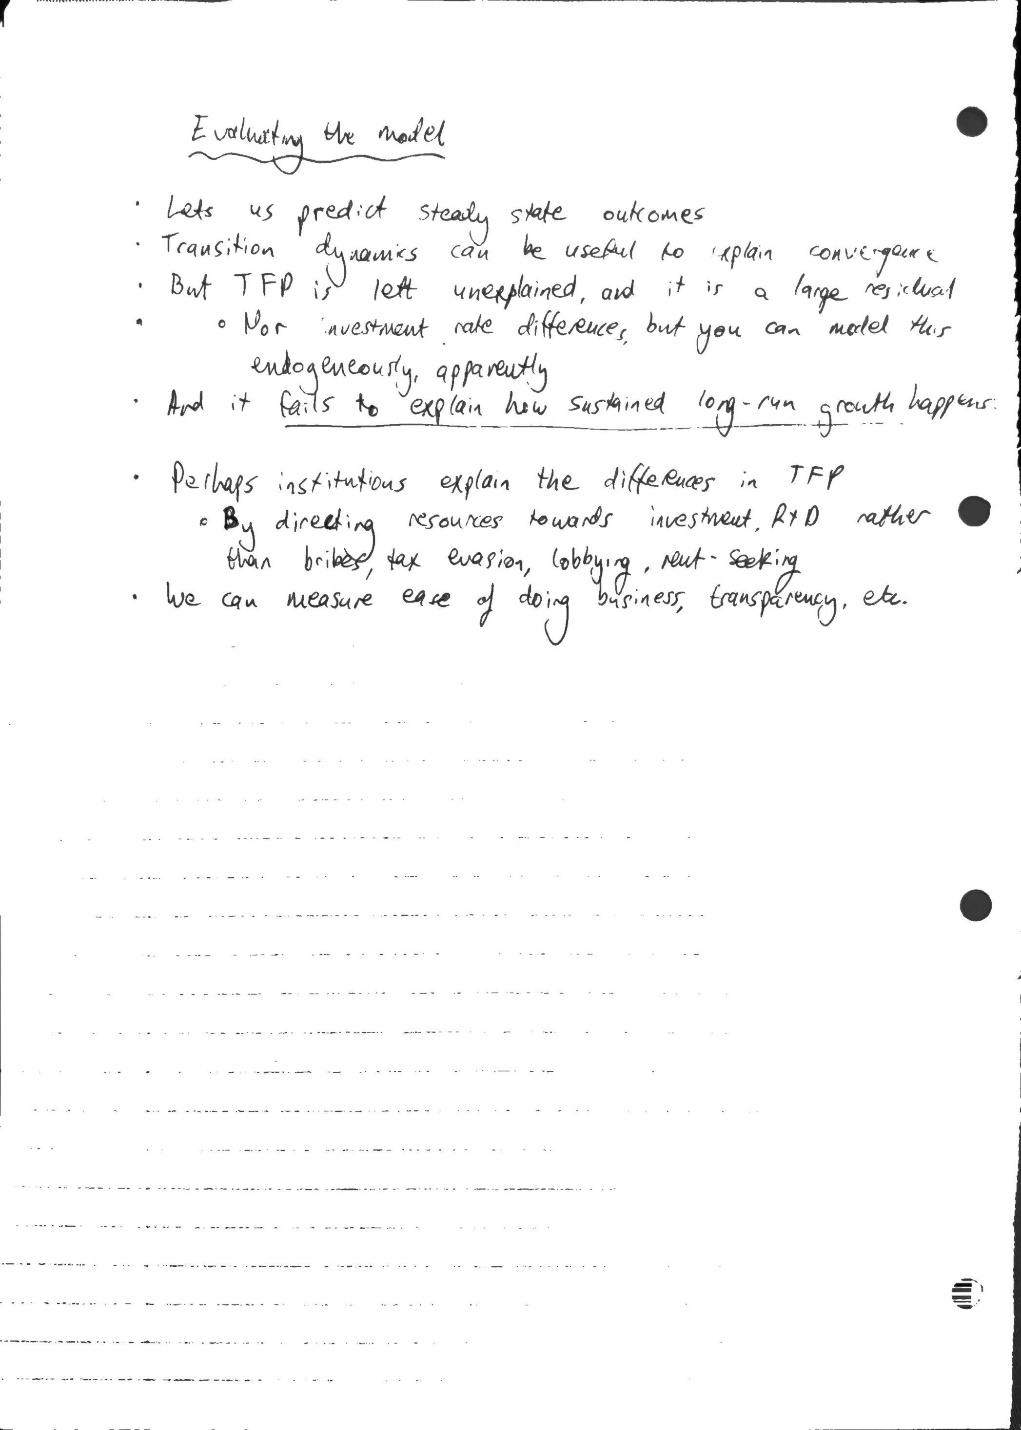 Evaluating the model
· Lets us predict steady state outcomes
· Transition dynamics can be useful to explain convergence
· But TFP is left unexplained, and it is a large residual
· ◦ Nor investment rate differences, but you can model this
endogeneously, apparently
· And it fails to explain how sustained long-run growth happens.
· Perhaps institutions explain the differences in TFP
◦ By directing resources towards investment, R+D rather
than bribes, tax evasion, lobbying, rent-seeking
· We can measure ease of doing business, transparency, etc.